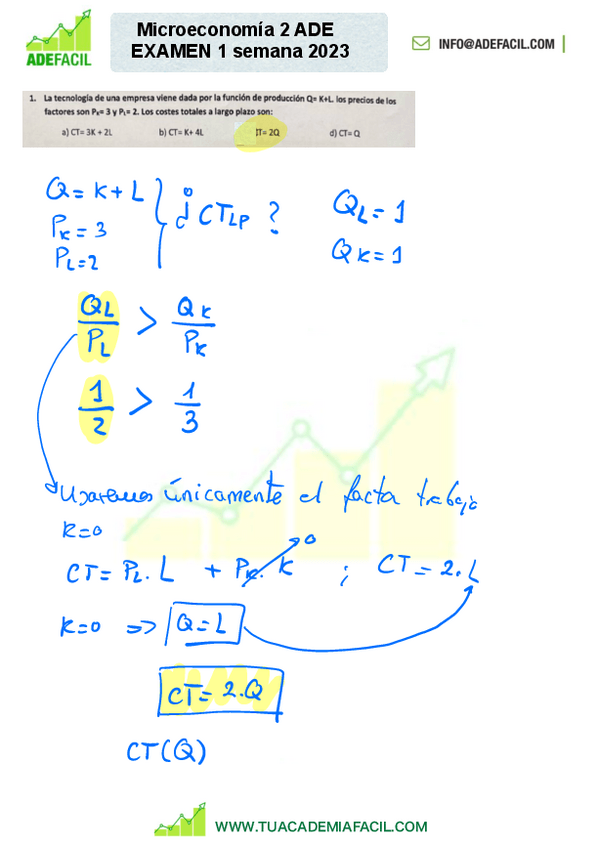 Microeconomía 2 ADE
EXAMEN 1 semana 2023
ADEFACIL
INFO@ADEFACIL.COM
1. La tecnología de una empresa viene dada por la función de producción Q= K+L. los precios de los
factores son Pₖ= 3 y Pₗ= 2. Los costes totales a largo plazo son:
a) CT= 3K + 2L b) CT= K+ 4L IT= 2Q d) CT= Q
Q = K + L
PK = 3
PL = 2
¿ CTLP ?
QL = 1
QK = 1
QL/PL > QK/PK
1/2 > 1/3
Usaremos únicamente el factor trabajo
K=0
CT = PL. L + PK. K 0 ; CT = 2. L
K=0 => Q = L
CT = 2.Q
CT(Q)
WWW.TUACADEMIAFACIL.COM